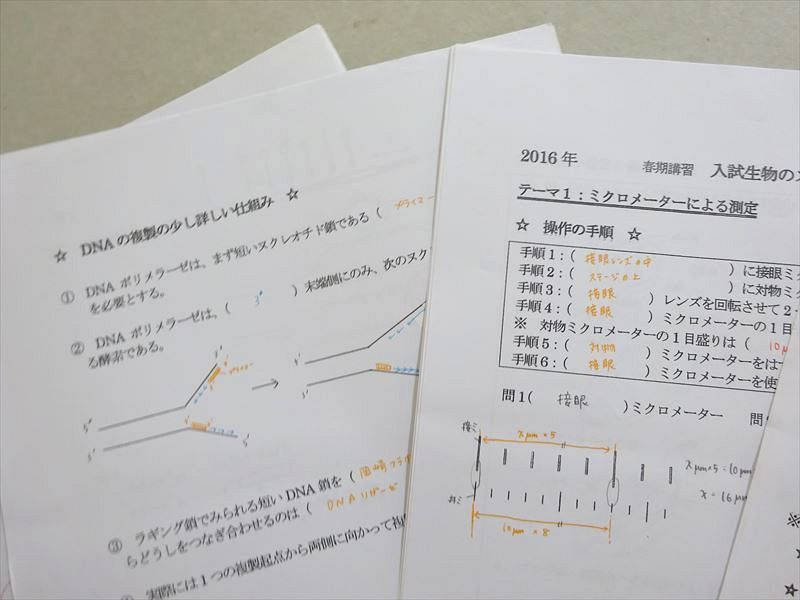 ☆ DNAの複製の少し詳しい仕組み ☆
① DNAポリメラーゼは、まず短いヌクレオチド鎖である( プライマー
を必要とする。
② DNAポリメラーゼは、( 3' )末端側にのみ、次のヌク
る酵素である。
3'
5'
③ ラギング鎖でみられる短いDNA鎖を( 岡崎フラグ
らどうしをつなぎ合わせるのは( DNAリガーゼ
実際には1つの複製起点から両側に向かって複
2016年 春期講習 入試生物の
テーマ1:ミクロメーターによる測定
☆ 操作の手順 ☆
手順1:( 接眼レンズの中 )に接眼ミ
手順2:( ステージの上 )に対物ミ
手順3:( 接眼 )レンズを回転させて2・
手順4:( 接眼 )ミクロメーターの1目
※ 対物ミクロメーターの1目盛りは( 10μ
手順5:( 対物 )ミクロメーターをは
手順6:( 接眼 )ミクロメーターを使
問1( 接眼 )ミクロメーター 問
接ミ
xμm×5
対ミ
10μm×8
xμm×5=10μm
x=16μm